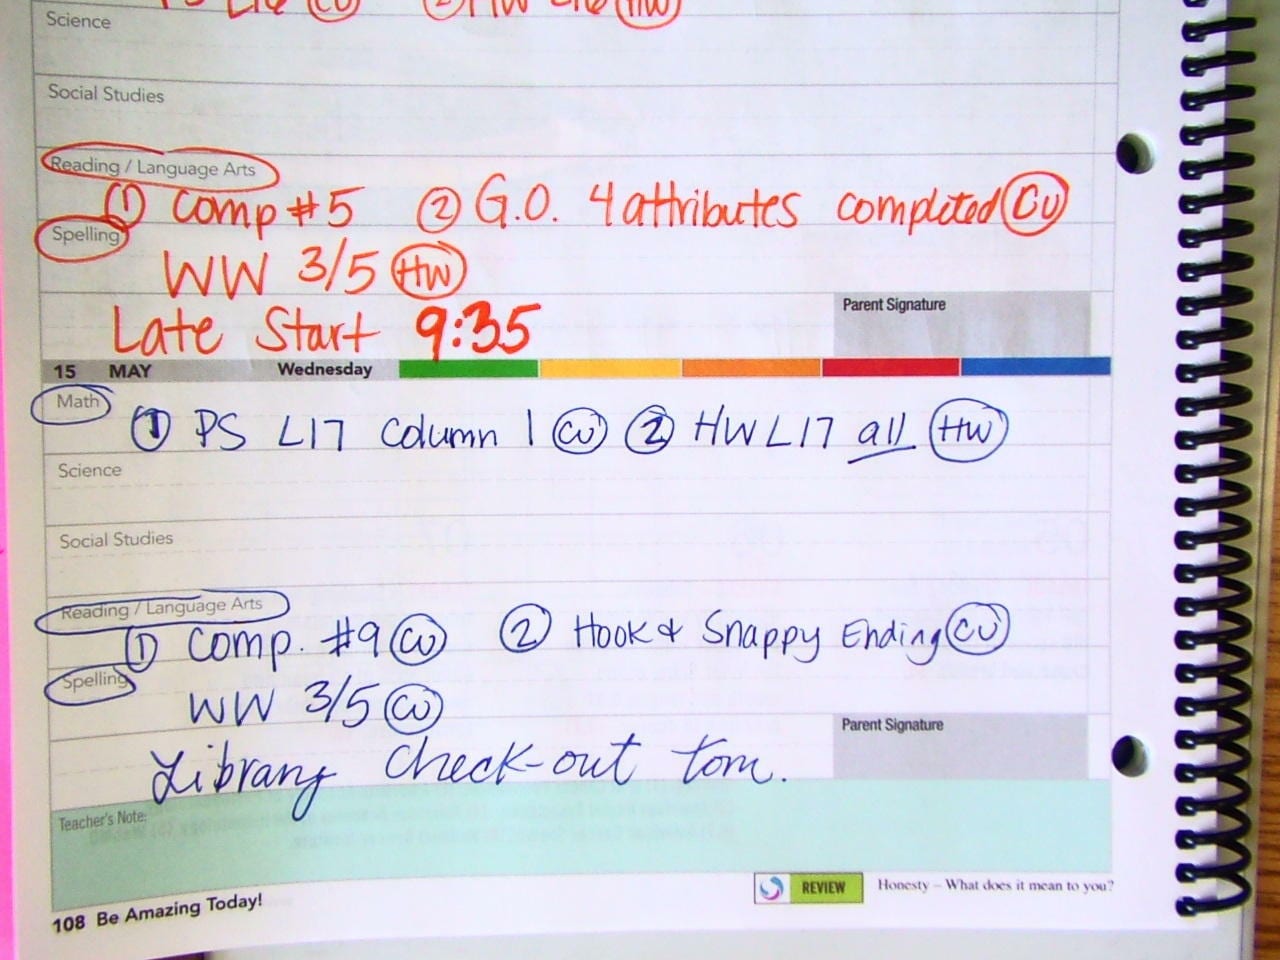 Science
Social Studies
Reading / Language Arts
① Comp #5 ② G.O. 4 attributes completed CW
Spelling
WW 3/5 HW
Late Start 9:35
Parent Signature
15 MAY Wednesday
Math
① PS L17 Column 1 CW ② HW L17 all HW
Science
Social Studies
Reading / Language Arts
① Comp. #9 CW ② Hook & Snappy Ending CW
Spelling
WW 3/5 CW
Library Check-out tom.
Parent Signature
Teacher's Note:
REVIEW Honesty – What does it mean to you?
108 Be Amazing Today!